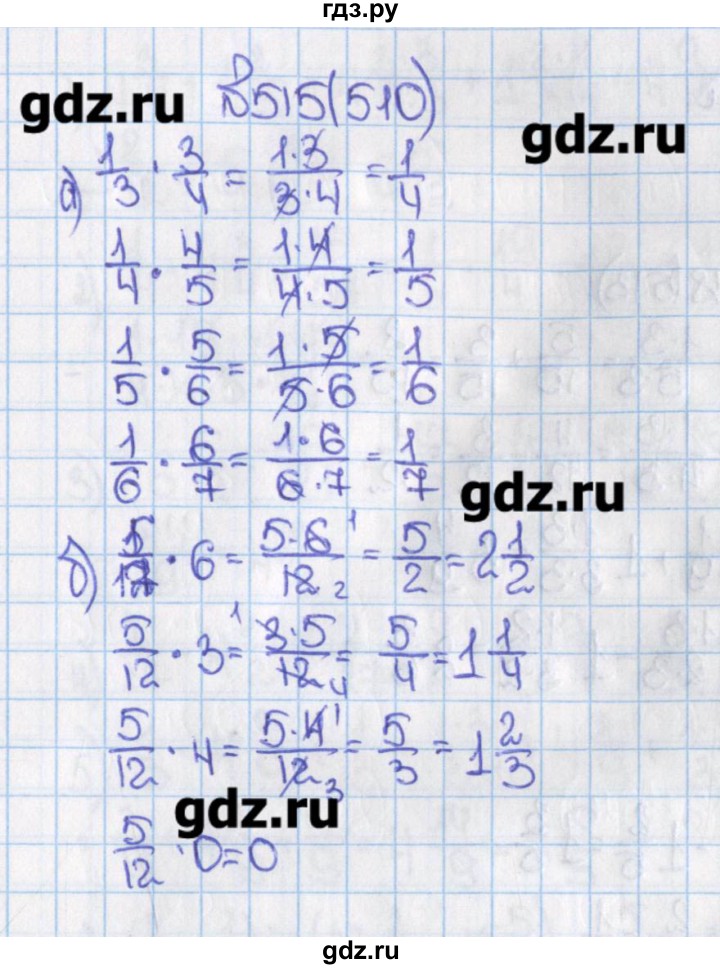 гдз.ру
gdz.ru
№515(510)
gdz.ru
а) 1/3 · 3/4 = 1·3/3·4 = 1/4
1/4 · 4/5 = 1·4/4·5 = 1/5
1/5 · 5/6 = 1·5/5·6 = 1/6
1/6 · 6/7 = 1·6/6·7 = 1/7
gdz.ru
б) 5/12 · 6 = 5·6 1/12 2 = 5/2 = 2 1/2
5/12 · 3 = 1 3·5/12 4 = 5/4 = 1 1/4
5/12 · 4 = 5·4 1/12 3 = 5/3 = 1 2/3
gdz.ru
5/12 · 0 = 0
gdz.ru